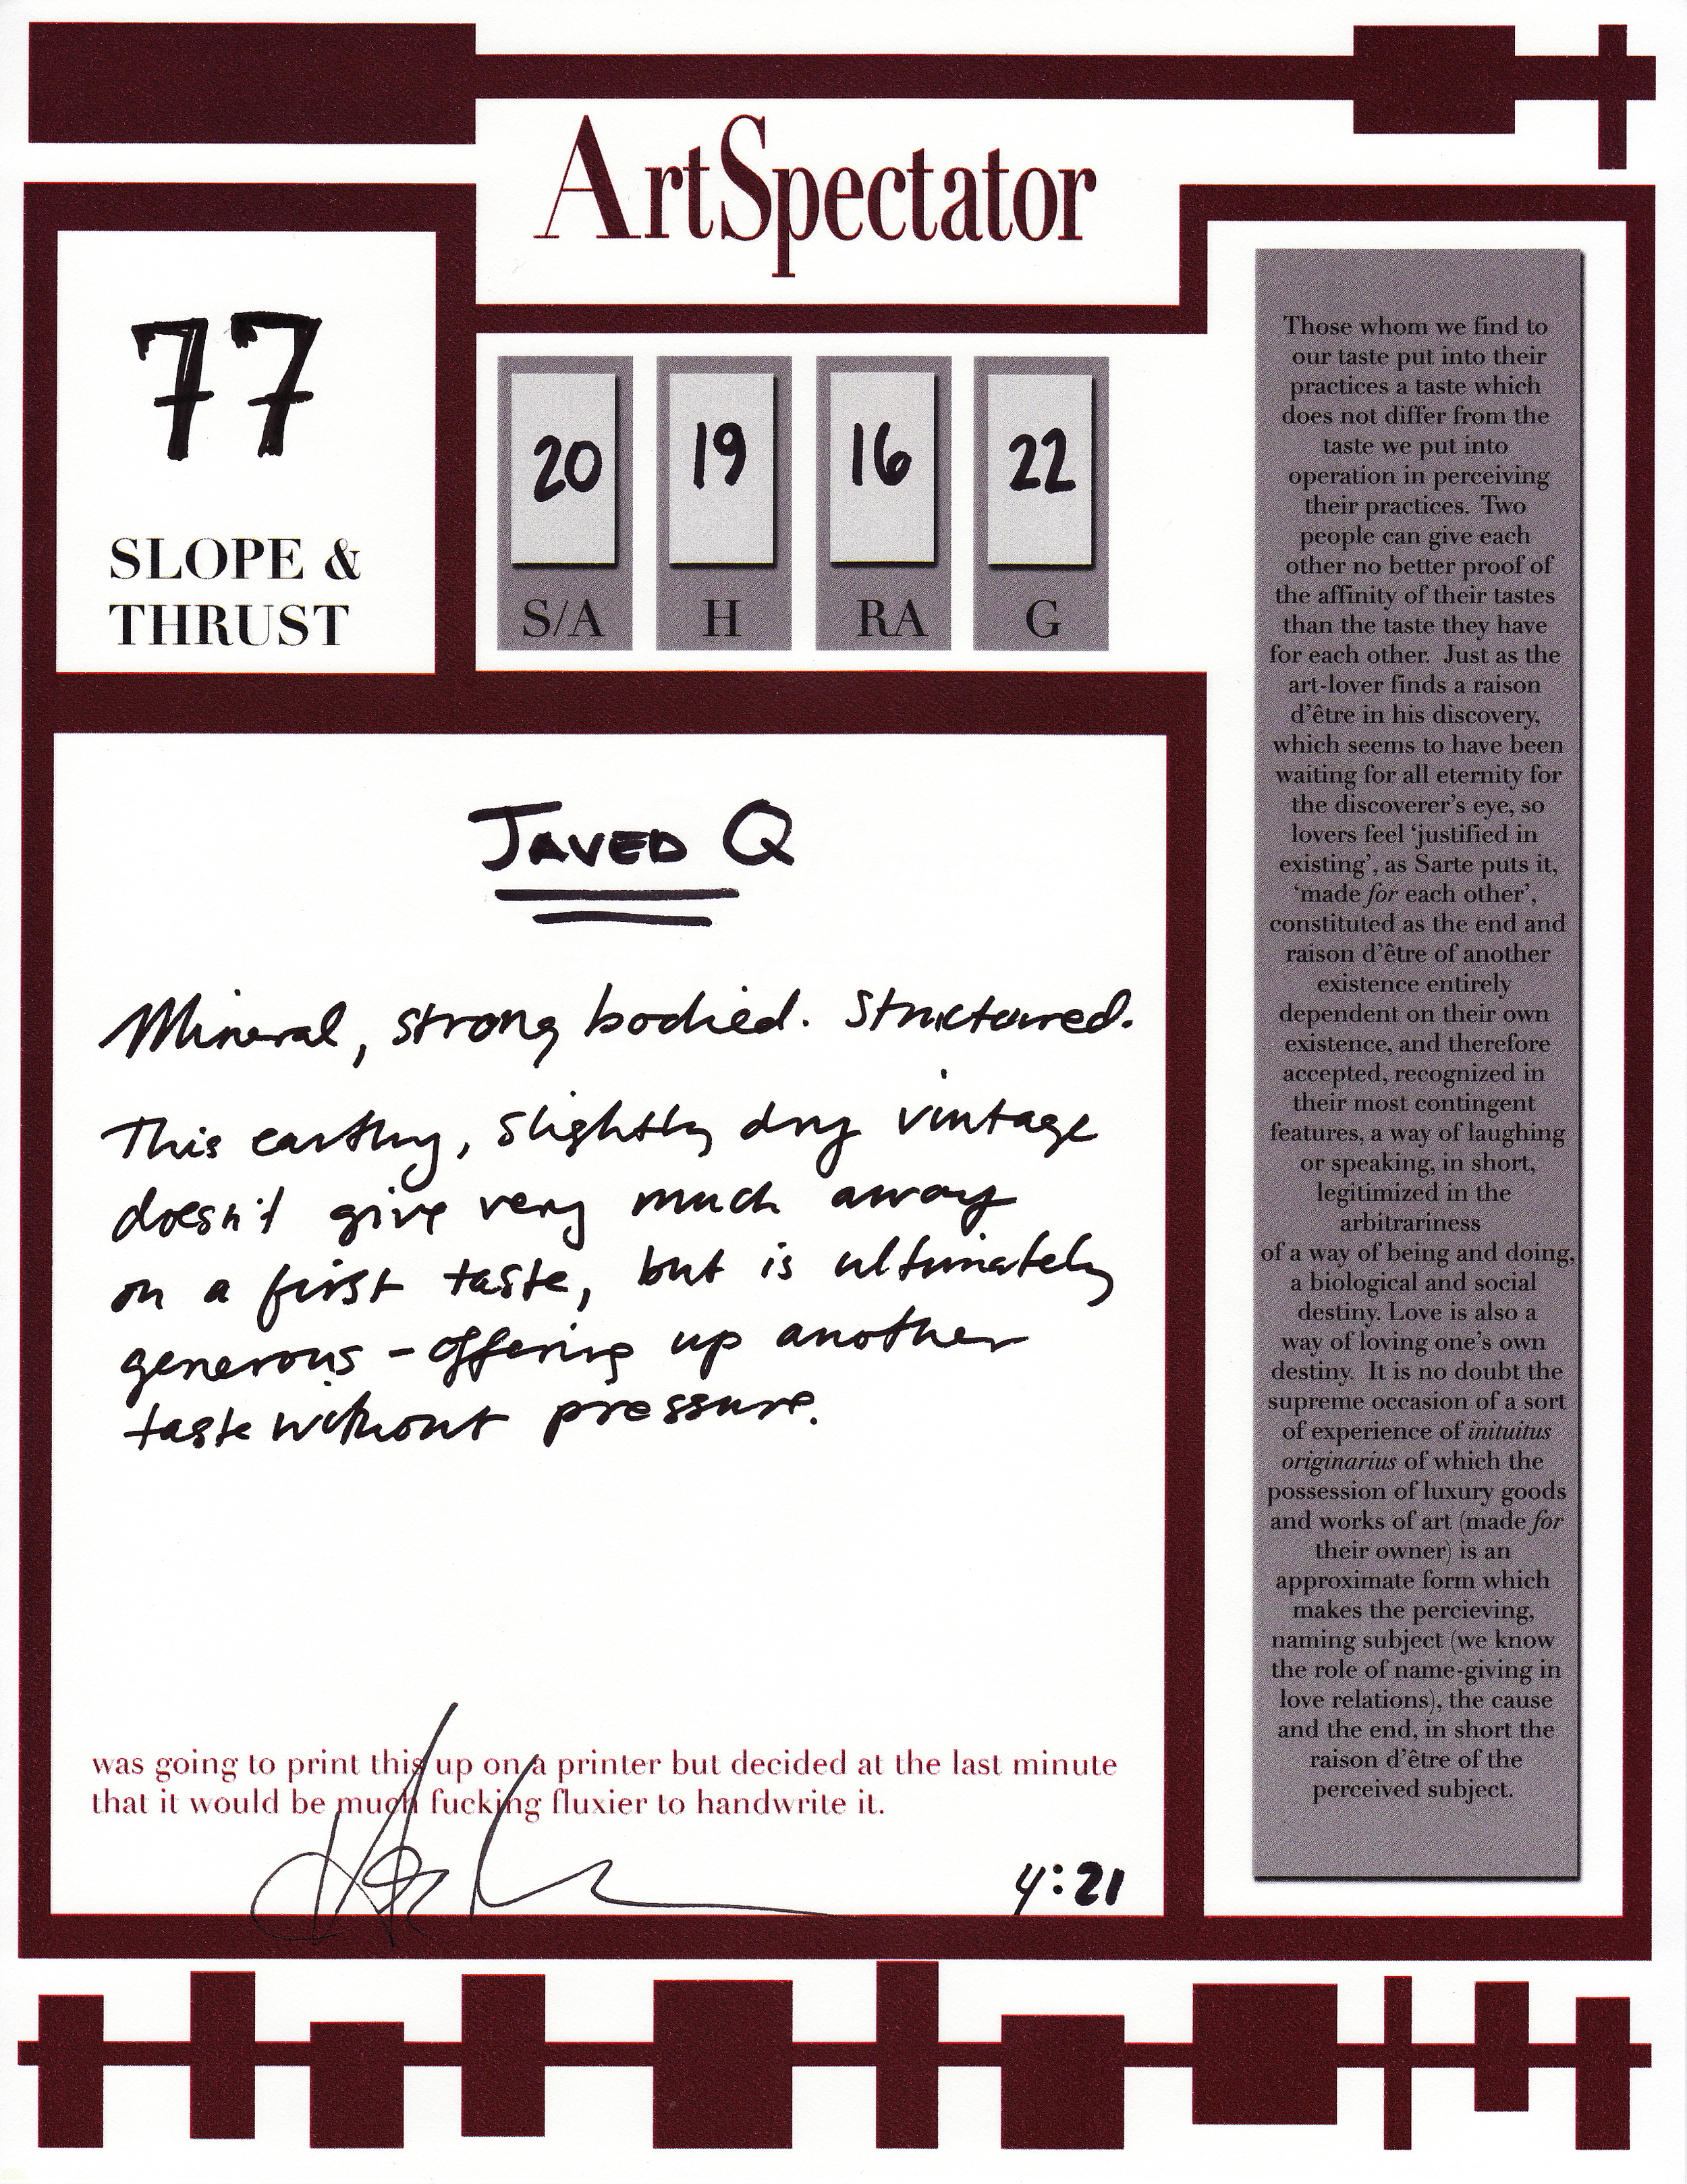 ArtSpectator
77
SLOPE &
THRUST
20 19 16 22
S/A H RA G
JAVED Q
Mineral, strong bodied. Structured.
This earthy, slightly dry vintage
doesn't give very much away
on a first taste, but is ultimately
generous - offering up another
taste without pressure.
was going to print this up on a printer but decided at the last minute
that it would be much fucking fluxier to handwrite it.
4:21
Those whom we find to
our taste put into their
practices a taste which
does not differ from the
taste we put into
operation in perceiving
their practices. Two
people can give each
other no better proof of
the affinity of their tastes
than the taste they have
for each other. Just as the
art-lover finds a raison
d'être in his discovery,
which seems to have been
waiting for all eternity for
the discoverer's eye, so
lovers feel 'justified in
existing', as Sarte puts it,
'made for each other',
constituted as the end and
raison d'être of another
existence entirely
dependent on their own
existence, and therefore
accepted, recognized in
their most contingent
features, a way of laughing
or speaking, in short,
legitimized in the
arbitrariness
of a way of being and doing,
a biological and social
destiny. Love is also a
way of loving one's own
destiny. It is no doubt the
supreme occasion of a sort
of experience of inituitus
originarius of which the
possession of luxury goods
and works of art (made for
their owner) is an
approximate form which
makes the percieving,
naming subject (we know
the role of name-giving in
love relations), the cause
and the end, in short the
raison d'être of the
perceived subject.